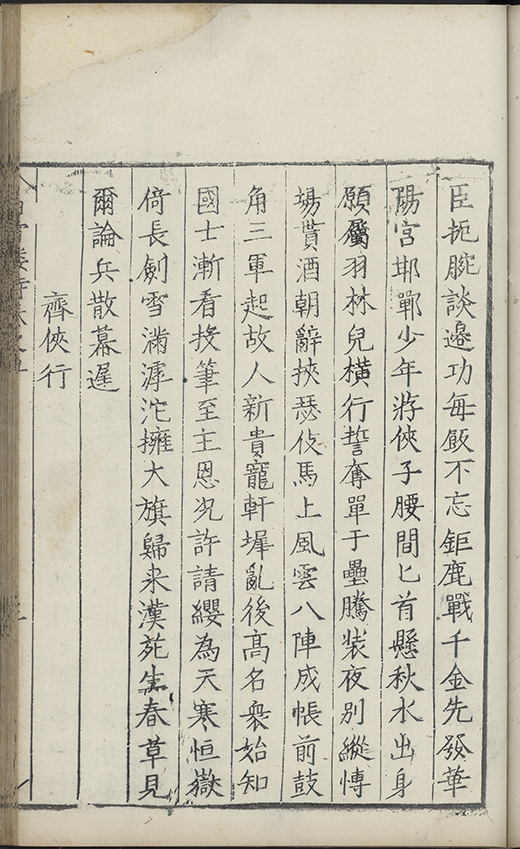 臣扼腕談邊功每飯不忘鉅鹿戰千金先發華
陽宮邯鄲少年游俠子腰間匕首懸秋水出身
願屬羽林兒橫行誓奪單于壘騰裝夜別縱愽
場貰酒朝辭挾瑟伎馬上風雲八陣成帳前鼓
角三軍起故人新貴寵軒墀亂後高名衆始知
國士漸看投筆至主恩况許請纓為天寒恒嶽
倚長劍雪滿滹沱擁大旗歸来漢苑生春草見
爾論兵散幕遲
齊俠行